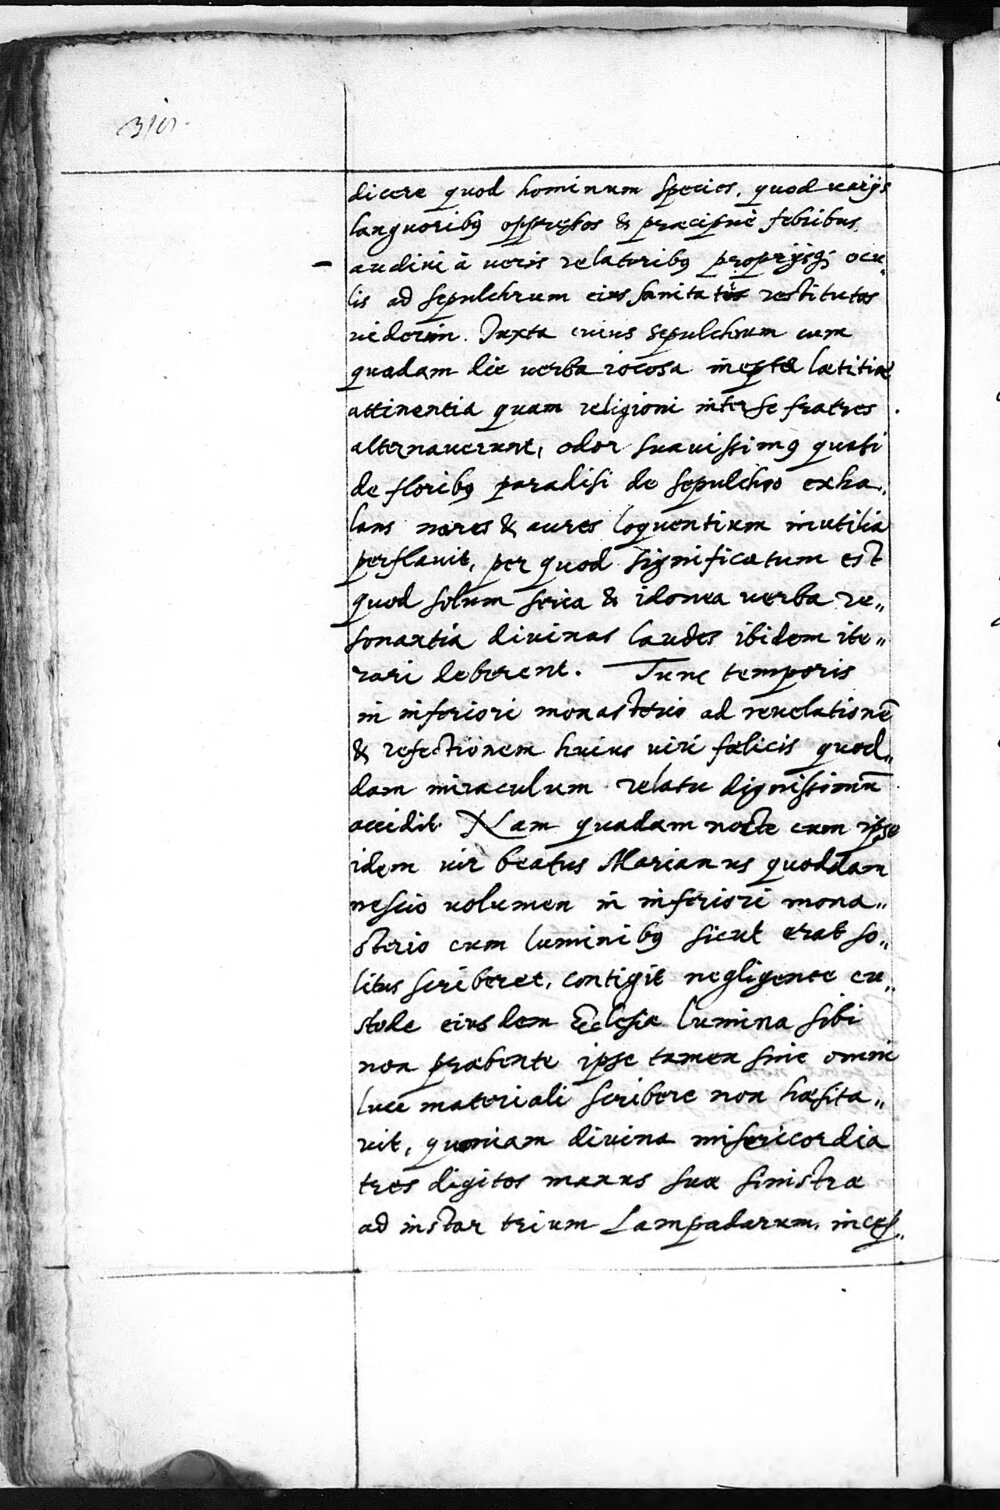 dicere quod hominum species, quod varijs
languoribꝰ oppressos & præcipuè febribus
audiui à veris relatoribꝰ proprijsqꝫ ocu„
lis ad sepulchrum eius sanitatis restitutos
viderim. Juxta cuius sepulchrum cum
quadam die verba iocosa inepta lætitiæ
attinentia quam religioni inter se fratres
alternauerunt, odor suauissimꝰ quasi
de floribꝰ paradisi de sepulchro exha„
lans nares & aures loquentium inutilia
perflauit, per quod significatum est
quod solum seria & idonea verba re„
sonantia diuinas laudes ibidem ite„
rari deberent. Tunc temporis
in inferiori monasterio ad reuelationē
& refectionem huius viri fælicis quod„
dam miraculum relatu dignissimū
accidit. Nam quadam nocte cum ipse
idem vir beatus Marianus quoddam
nescio volumen in inferiori mona„
sterio cum luminibꝰ sicut erat so„
litus scriberet, contigit negligente cu„
stode eiusdem Ecclesiæ lumina sibi
non præbente ipse tamen sine omni
luce materiali scribere non hæsita„
vit, quoniam diuina misericordia
tres digitos manus suæ sinistræ
ad instar trium Lampadarum,